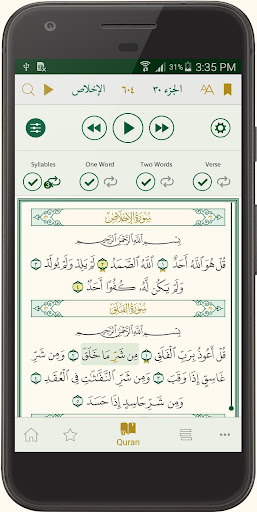 31% 3:35 PM
الإخلاص ٦٠٤ الجزء ٣٠ AA
Syllables One Word Two Words Verse
سُورَةُ الإِخْلَاصِ
بِسْمِ اللَّهِ الرَّحْمَٰنِ الرَّحِيمِ
قُلْ هُوَ اللَّهُ أَحَدٌ ١ اللَّهُ الصَّمَدُ ٢ لَمْ يَلِدْ وَلَمْ يُولَدْ ٣
وَلَمْ يَكُن لَّهُ كُفُوًا أَحَدٌ ٤
سُورَةُ الْفَلَقِ
بِسْمِ اللَّهِ الرَّحْمَٰنِ الرَّحِيمِ
قُلْ أَعُوذُ بِرَبِّ الْفَلَقِ ١ مِن شَرِّ مَا خَلَقَ ٢ وَمِن شَرِّ
غَاسِقٍ إِذَا وَقَبَ ٣ وَمِن شَرِّ النَّفَّاثَاتِ فِي الْعُقَدِ ٤
وَمِن شَرِّ حَاسِدٍ إِذَا حَسَدَ ٥
Quran